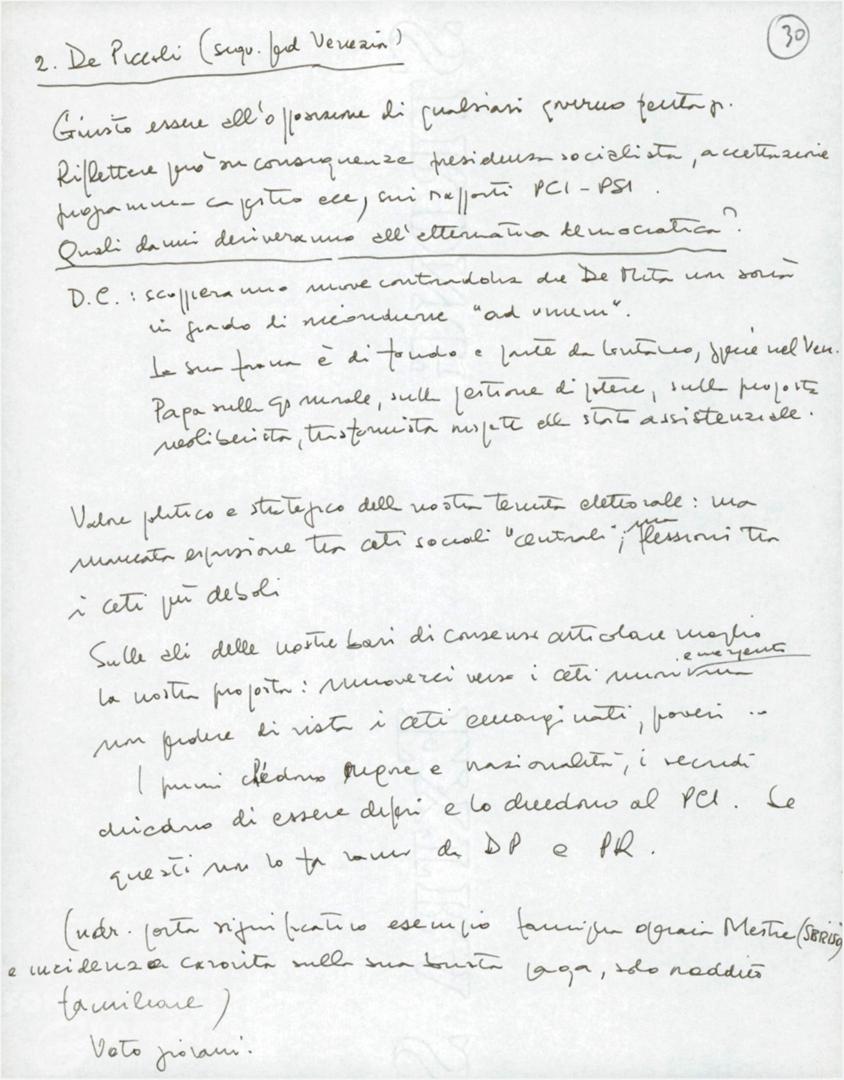 30
2. De Piccoli (segr. fed Venezia)
Giusto essere all'opposizione di qualsiasi governo pentap.
Riflettere però su conseguenze presidenza socialista, accettazione
programma capestro ecc, sui rapporti PCI - PSI.
Quali danni deriveranno all'alternativa democratica?
D.C.: scoppieranno nuove contraddiz che De Mita non sarà
in grado di ricondurre "ad unum".
La sua frana è di fondo e parte da lontano, specie nel Ven.
Paga sulla qs morale, sulla gestione di potere, sulla proposta
neoliberista, trasformista rispetto allo stato assistenziale.
Valore politico e strategico della nostra tenuta elettorale: ma
mancata espansione tra ceti sociali "centrali"; ma flessioni tra
i ceti più deboli
Sulle ali delle nostre basi di consenso articolare meglio
la nostra proposta: muoverci verso i ceti nuovi emergenti
non perdere di vista i ceti emarginati, poveri ..
I primi chiedono rigore e razionalità, i secondi
chiedono di essere difesi e lo chiedono al PCI. Se
questi non lo fa vanno da DP e PR.
(ndr. porta significativo esempio famiglia operaia Mestre (SBRISO)
e incidenza carovita sulla sua busta paga, solo reddito
familiare)
Voto giovani.